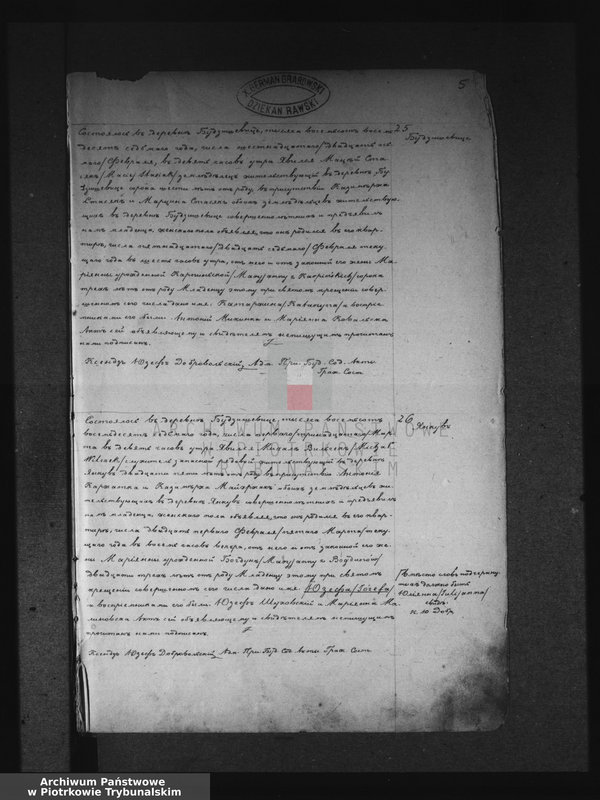 X. HERMAN GRABOWSKI
DZIEKAN RAWSKI
5
25
Будзишевице
Состоялось въ деревнѣ Будзишевице, тысяча восемьсотъ восемь
десятъ седьмаго года, числа шестнадцатаго/двадцать вось
маго/Февраля, въ девять часовъ утра. Явился Мацѣй Ста
сякъ /Maciej Stasiak/ земледѣлецъ жительствующій въ деревнѣ Бу
дзишевице сорока шести лѣтъ отъ роду, въ присутствіи Казимѣржа
Стасякъ и Марцина Стасякъ обоихъ земледѣльцевъ жительствую
щихъ въ деревнѣ Будзишевице совершеннолѣтнихъ и предъявилъ
намъ младенца женскаго пола объявляя, что онъ родился въ его квар
тирѣ, числа пятнадцатаго/двадцать седьмаго/Февраля теку
щаго года въ шесть часовъ утра, отъ него и отъ законной его жены Ма
ріянны урожденной
трехъ лѣтъ отъ роду. Младенцу этому при святомъ крещеніи совер
шенномъ сего числа дано имя: Катаржина
никами его были: Антоній и Маріянна Ковальска
Актъ сей объявляющему и свидѣтелямъ неписьменнымъ прочитанъ
нами подписанъ.
Ксендзъ Юзефъ Добровольскій Адм. При. Буд. Сод. Акты
Граж. Сост.
26
Янкувъ
Состоялось въ деревнѣ Будзишевице, тысяча восемьсотъ
восемьдесятъ седьмаго года, числа перваго/тринадцатаго/Мар
та въ девять часовъ утра. Явился Михалъ Вильчекъ /Michał
Wilczek/ служитель запасной рядовой жительствующій въ деревнѣ
Янкувъ двадцати пяти лѣтъ отъ роду, въ присутствіи Антонія
и Казимѣржа обоихъ земледѣльцевъ жи
тельствующихъ въ деревнѣ Янкувъ совершеннолѣтнихъ и предъявилъ
намъ младенца женскаго пола объявляя, что онъ родился въ его квар
тирѣ, числа двадцать перваго Февраля/пятаго Марта/теку
щаго года въ восемь часовъ вечера, отъ него и отъ законной его же
ны Маріянны урожденной
двадцати трехъ лѣтъ отъ роду. Младенцу этому при святомъ
крещеніи совершенномъ сего числа дано имя: Юзефа/Józefa/
а воспріемниками его были: Юзефъ и Маріянна Ма
линовска. Актъ сей объявляющему и свидѣтелямъ неписьменнымъ
прочитанъ нами подписанъ.
Ксендзъ Юзефъ Добровольскій Адм. При. Буд. Сод. Акты Граж. Сост.
Вмѣсто словъ подчеркну
тыхъ должно быть
Юліянна/Julijanna/
Archiwum Państwowe
w Piotrkowie Trybunalskim